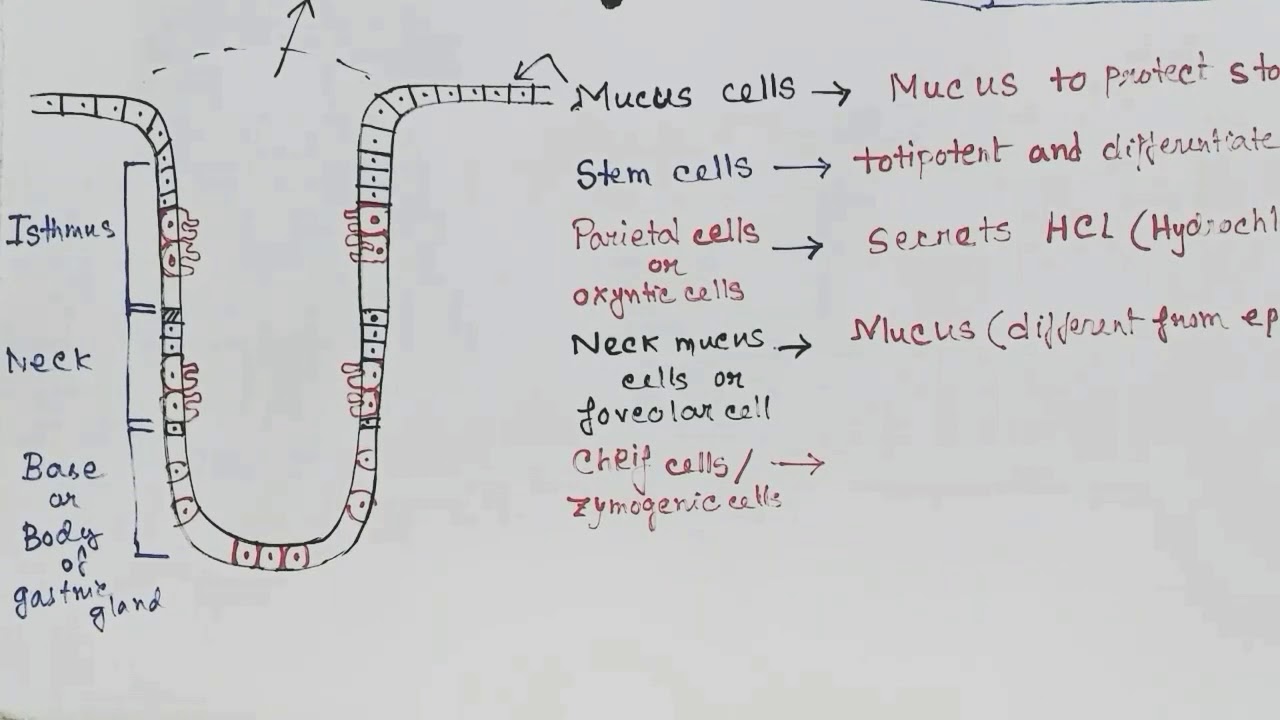 Isthmus
Neck
Base
or
Body
of
gastric
gland
Mucus cells → Mucus to protect sto
Stem cells → totipotent and differentiate
Parietal cells → Secrets HCL (Hydrochl
or
oxyntic cells
Neck mucus → Mucus (different from ep
cells or
foveolar cell
Cheif cells/ →
zymogenic cells